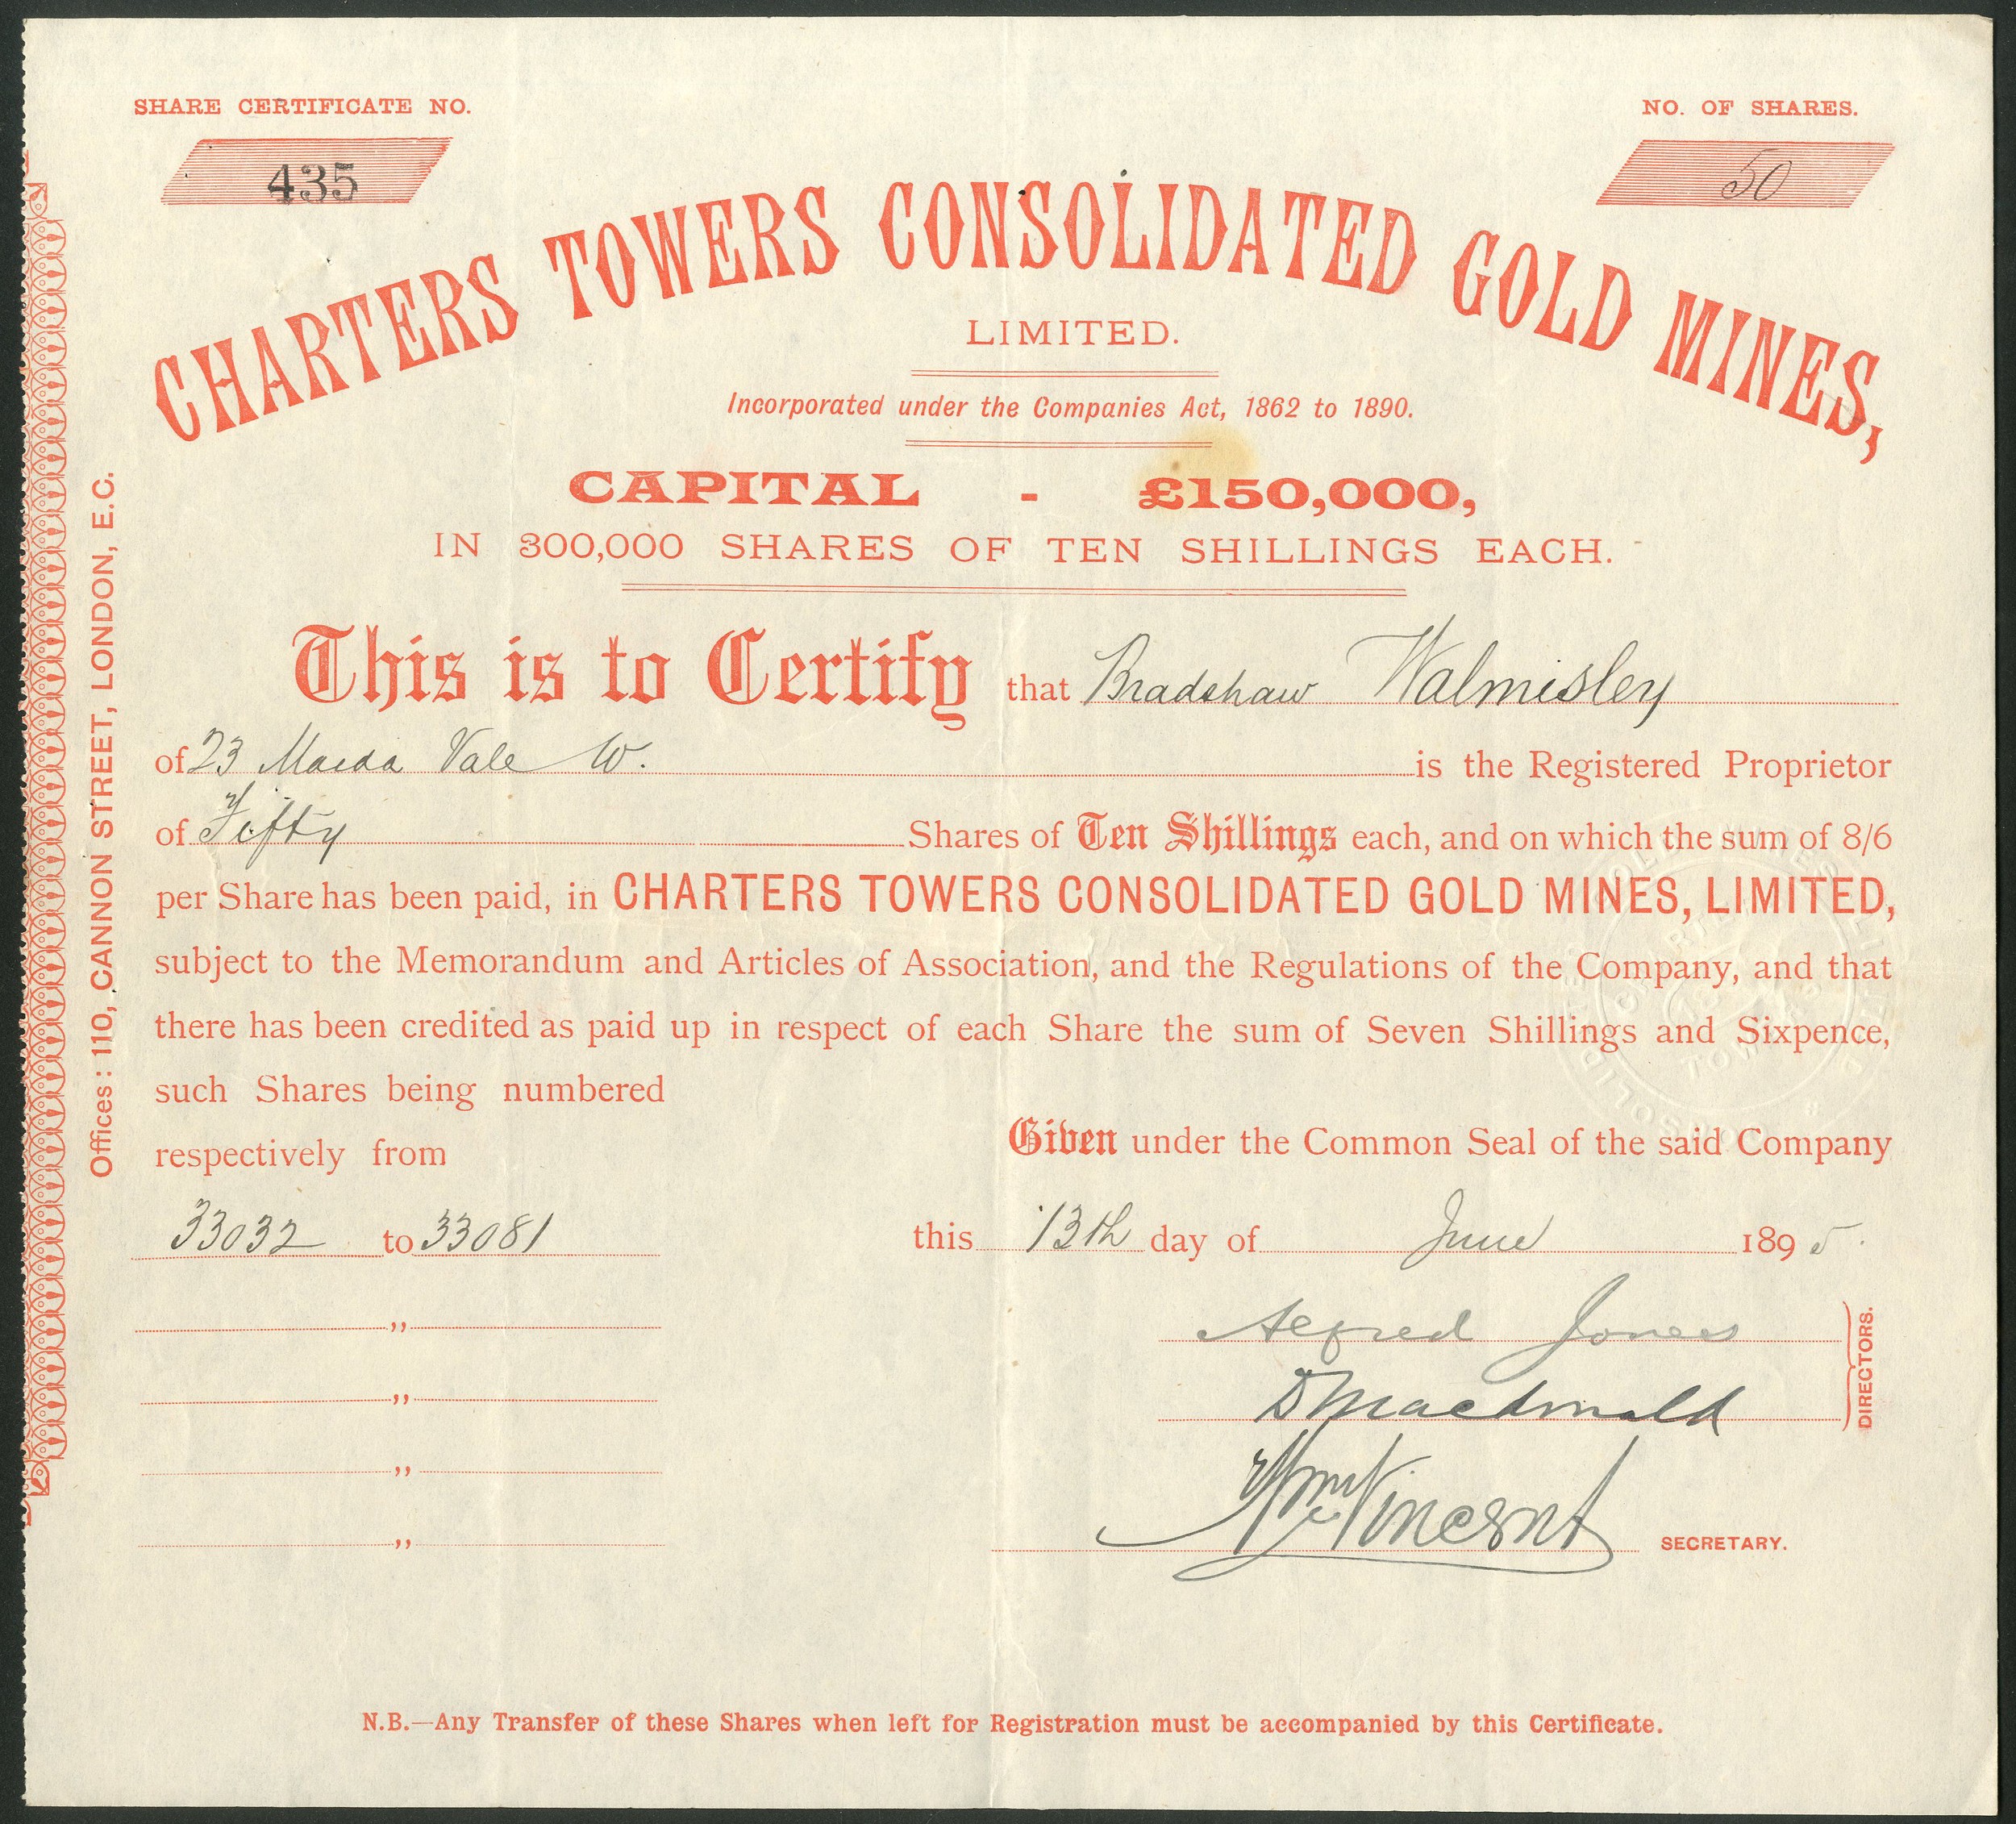 SHARE CERTIFICATE NO.
435
NO. OF SHARES.
50
CHARTERS TOWERS CONSOLIDATED GOLD MINES,
LIMITED.
Incorporated under the Companies Act, 1862 to 1890.
CAPITAL - £150,000,
IN 300,000 SHARES OF TEN SHILLINGS EACH.
This is to Certify that Bradshaw Walmisley
of 23 Maida Vale W. is the Registered Proprietor
of Fifty Shares of Ten Shillings each, and on which the sum of 8/6
per Share has been paid, in CHARTERS TOWERS CONSOLIDATED GOLD MINES, LIMITED,
subject to the Memorandum and Articles of Association, and the Regulations of the Company, and that
there has been credited as paid up in respect of each Share the sum of Seven Shillings and Sixpence,
such Shares being numbered
respectively from
Given under the Common Seal of the said Company
33032 to 33081
this 13th day of June 1895.
„
„
„
„
Alfred Jones
D Macdonald
DIRECTORS.
Wm Vincent
SECRETARY.
N.B.—Any Transfer of these Shares when left for Registration must be accompanied by this Certificate.
Offices: 110, CANNON STREET, LONDON, E.C.
CHARTERS TOWERS
CONSOLIDATED GOLD MINES LIMITED